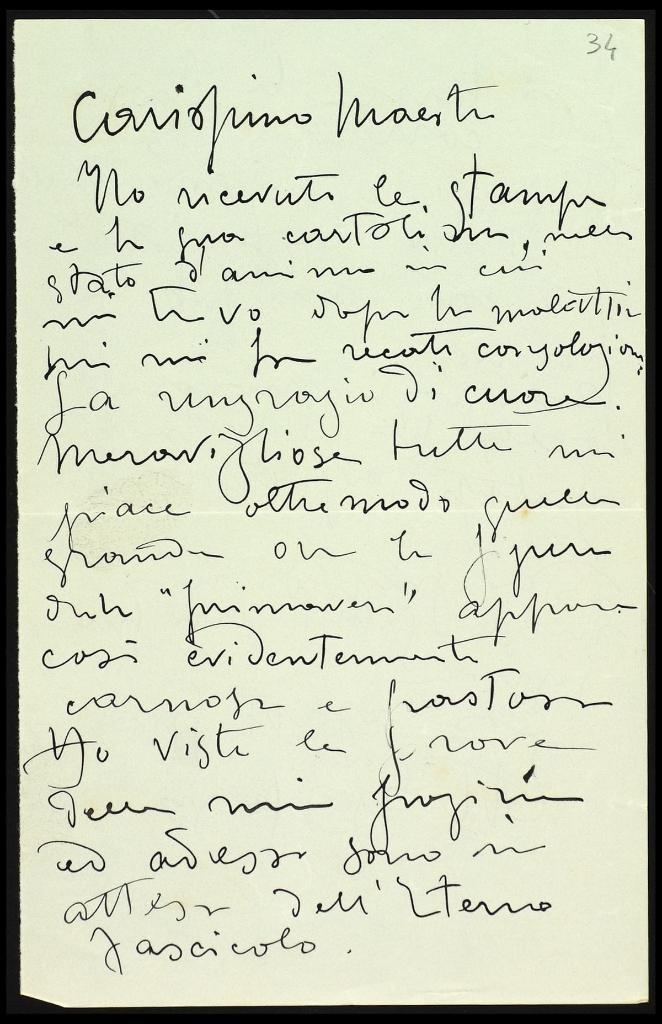 34
Carissimo Maestro
Ho ricevuto le stampe
e la sua cartolina, nello
stato d'animo in cui
mi trovo dopo la malattia
mi recati consolazione
La ringrazio di cuore.
Meravigliose tutte mi
piace oltremodo quella
grande ove la figura
della "primavera" appare
così evidentemente
carnosa e pastosa
Ho viste le prove
della mia
ed adesso sono in
attesa dell'Eterno
fascicolo.